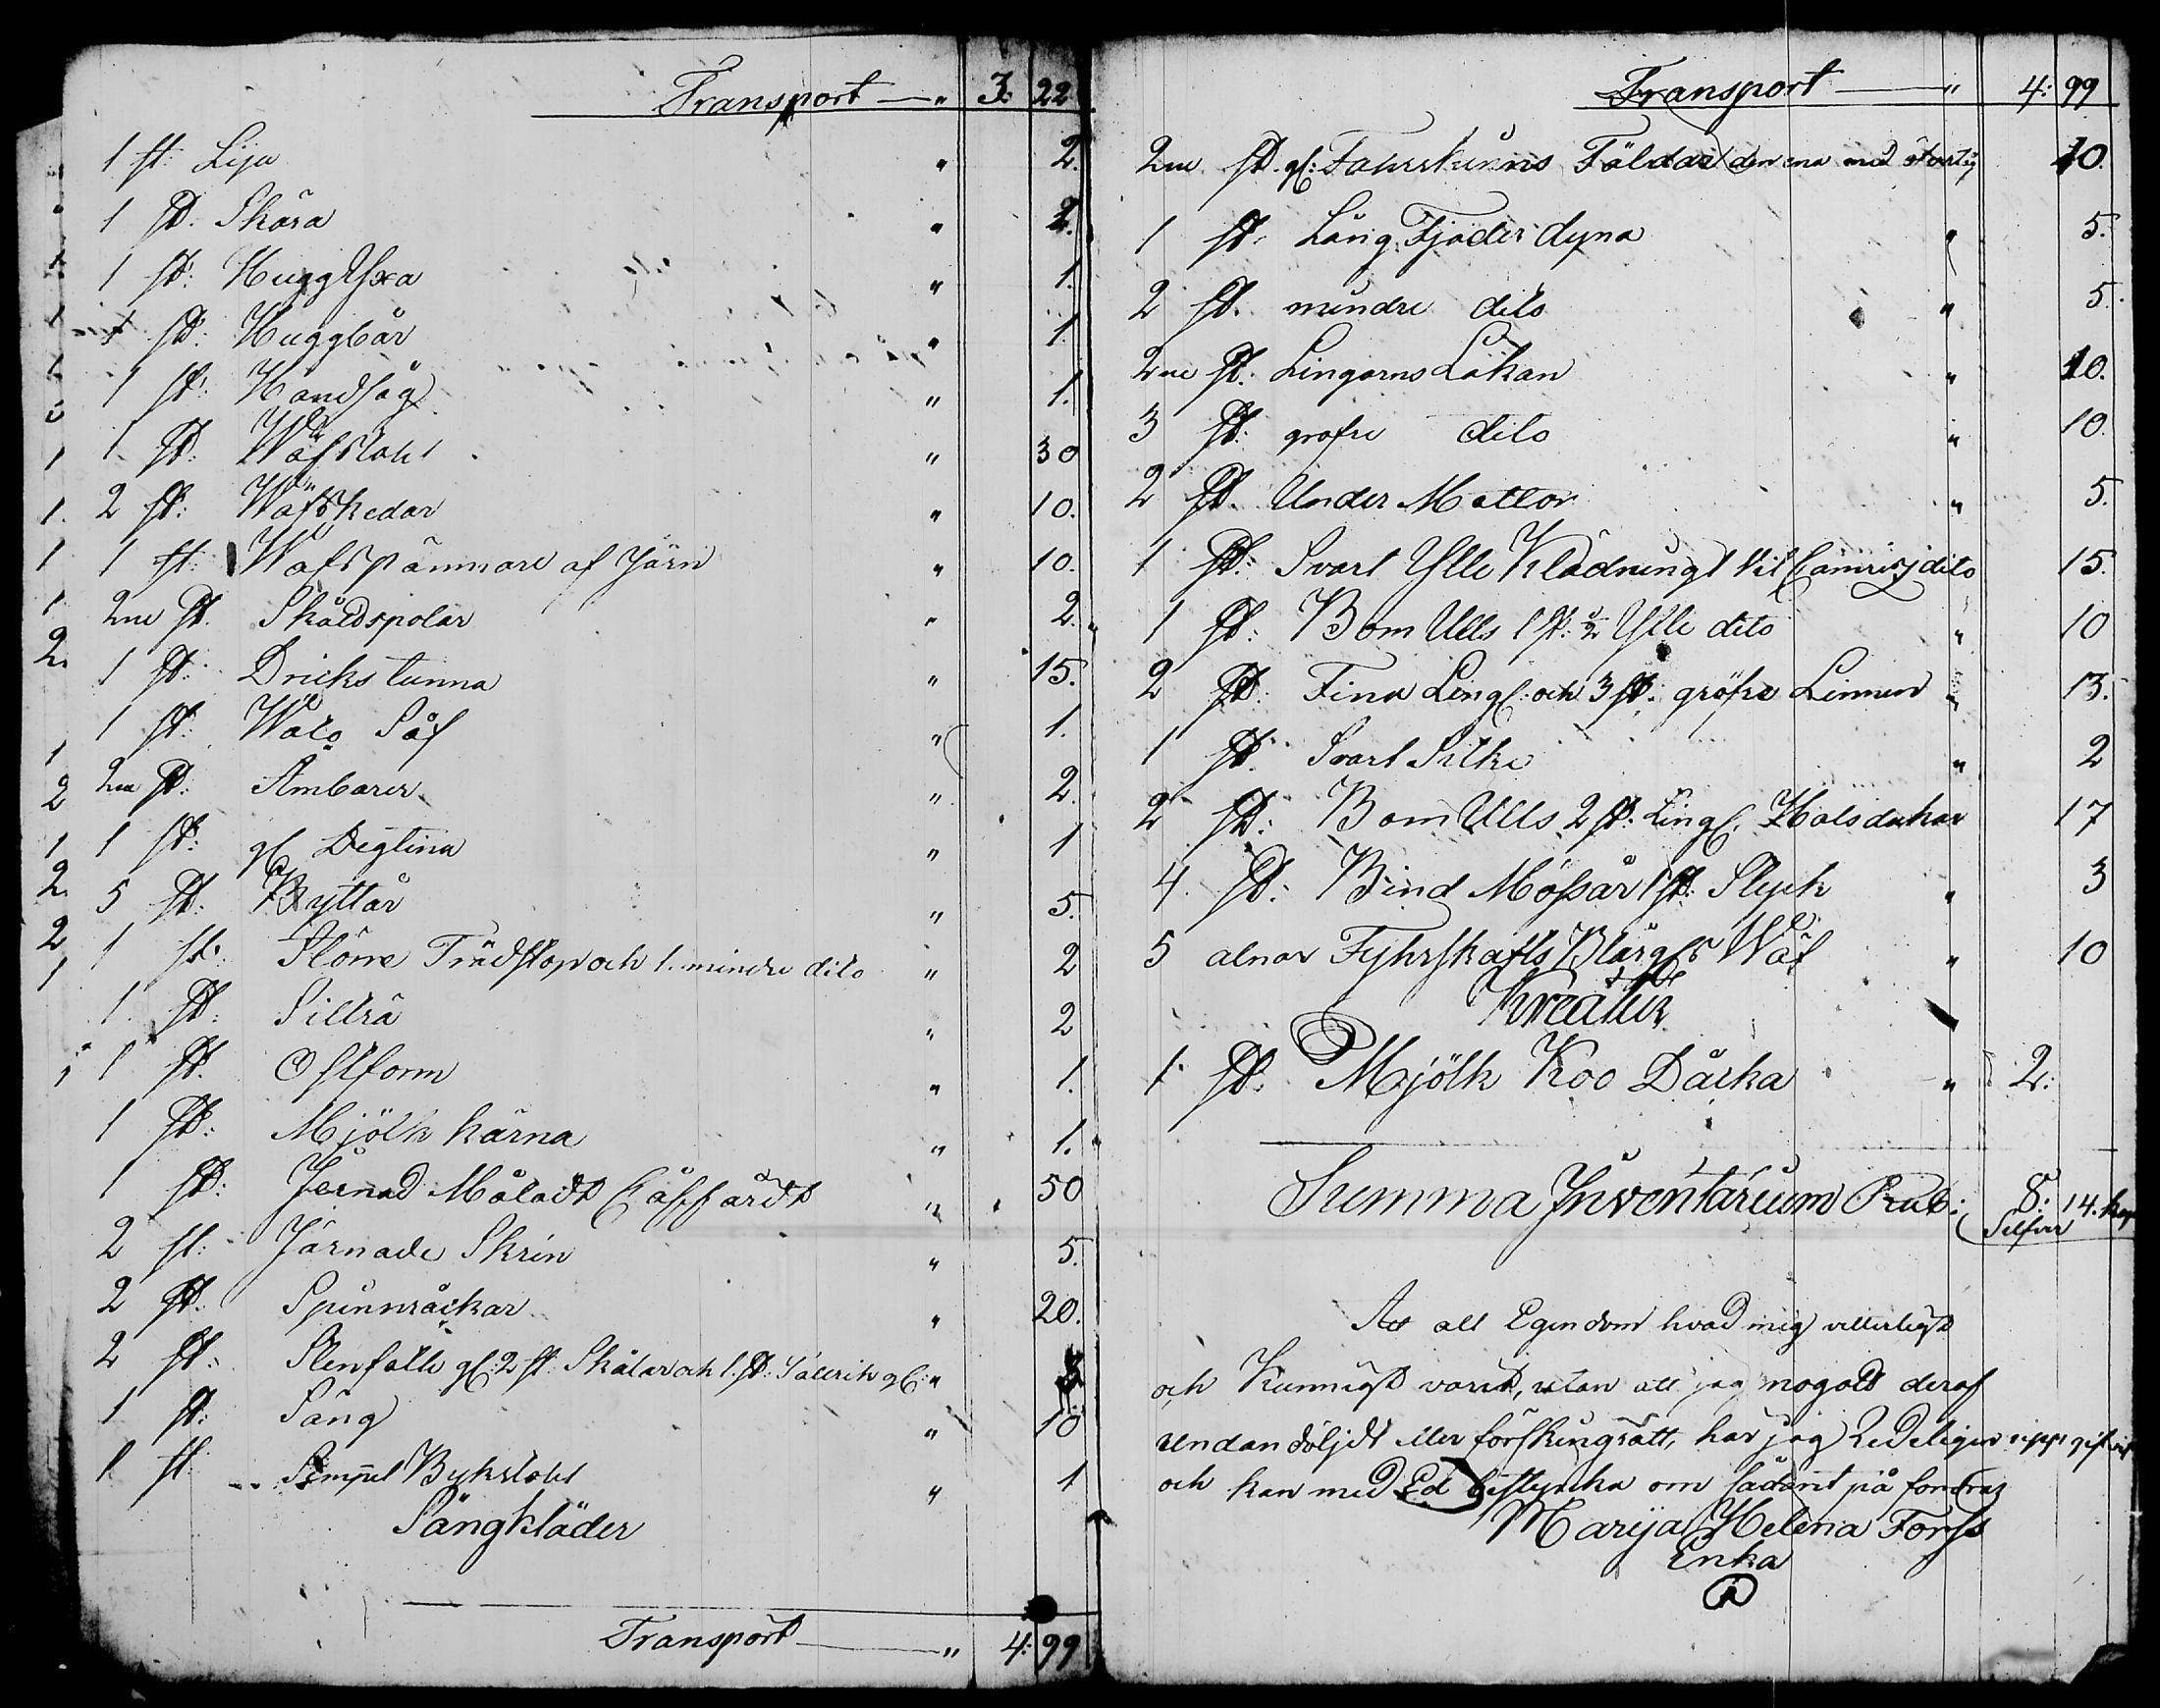 Transport — " 3: 22
1 st: Lija " 2.
1 st: Skära " 2.
1 st: HuggYxa " 1.
1 st: Huggbår " 1.
1 st: Handsåg " 1.
1 st: Wäfstohl " 30
2 st: Wäfskedar " 10.
1 st: Wäfspännare af Järn " 10.
2ne st. Skåldspolar " 2.
1 st: Drickstunna " 15.
1 st: Wälo Såf " 1.
2ne st: Ämbarer " 2.
1 st: gl Degtina " 1
5 st: Byttår " 5.
1 st: Störrre Trädstop och 1. mindre dito " 2
1 st: Sillrå " 2
1 st. Ostform " 1.
1 st: Mjölk kärna " 1.
1 st: Jernad Måladt Cåffårdt " 50
2 st: Järnade Skrin " 5.
2 st: Spinnråckar " 20.
2 st: Stenfatt gl: 2 st: Skålar och 1. st: Tallrik gl: " 3
1 st: Säng " 10
1 st: Simpel Bykstohl " 1
Sängkläder
Transport — " 4: 99
Transport — " 4: 99
2ne st. gl: Fahrskinns Fäldar den ena med 10.
1 st: Lång Fjäder dyna " 5.
2 st. mindre dito " 5.
2ne st. Lingarns Lakan " 10.
3 st: grofre dito " 10.
2 st. Under Mattor " 5.
1 st: Svart Ylle Klädning 1 st Camrisj dito 15.
1 st: Bom Ulls 1 st: ½ Ylle dito " 10
2 st: Fina Lingl: och 3 st: gröfre Linnen " 13.
1 st. Svart Silke " 2
2 st: BomUlls 2 st: Lingl. Halsdukar 17
4. st: Bind Mössår 1 st: Styck " 3
5 alnar Fyhrskafts Blårgls Wäf " 10
Kreatur
1 st: Mjölk Koo Dåcka " 2:
Summa Inventarium Rub: 8: 14. kop
Silfver
At all Egendom hvad mig vitterligt
och Kunnigt varit, utan att jag nogot deraf
undandöljdt eller förskingratt, har jag Redeligen uppgifvit
och kan med Ed bestyrcka om sådant på fordras
Marija Helena Forss
Enka